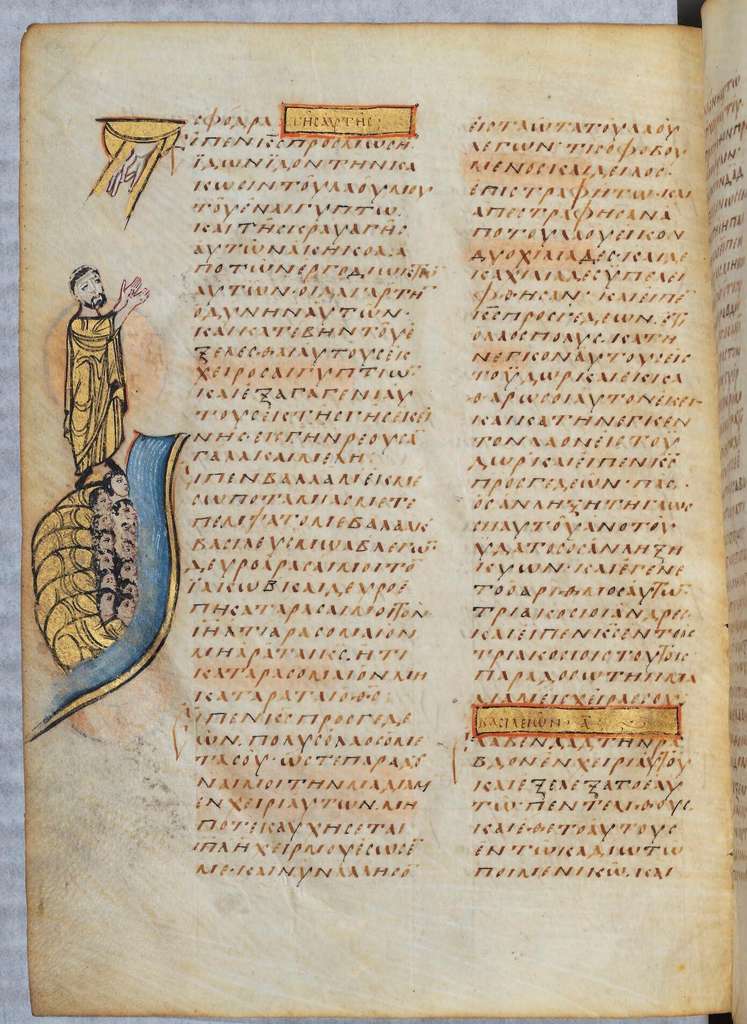 ΣΦΟΔΡΑ ΤΗΣΑΥΤΗΣ:
ΕΙΠΕΝΚΣΠΡΟΣΜΩΣΗ·
ΙΔΩΝΙΔΟΝΤΗΝΚΑ
ΚΩΣΙΝΤΟΥΛΑΟΥΜΟΥ
ΤΟΥΕΝΑΙΓΥΠΤΩ·
ΚΑΙΤΗΣΚΡΑΥΓΗΣ
ΑΥΤΩΝΑΚΗΚΟΑ·Α
ΠΟΤΩΝΕΡΓΟΔΙΩΚΤΩ
ΑΥΤΩΝ·ΟΙΔΑΓΑΡΤΗ
ΟΔΥΝΗΝΑΥΤΩΝ·
ΚΑΙΚΑΤΕΒΗΝΤΟΥΕ
ΞΕΛΕΣΘΑΙΑΥΤΟΥΣΕΚ
ΧΕΙΡΟΣΑΙΓΥΠΤΙΩ
ΚΑΙΕΞΑΓΑΓΕΝΑΥ
ΤΟΥΣΕΚΤΗΣΓΗΣΕΚΕΙ
ΝΗΣ·ΕΙΣΓΗΝΡΕΟΥΣΑ
ΓΑΛΑΚΑΙΜΕΛΗ·
ΕΙΠΕΝΒΑΛΛΑΜΕΚΜΕ
ΣΩΠΟΤΑΜΙΑΣΜΕΤΕ
ΠΕΜΨΑΤΟΜΕΒΑΛΑΑΚ
ΒΑΣΙΛΕΥΣΜΩΑΒΛΕΓΩ
ΔΕΥΡΟΑΡΑΣΑΙΜΟΙΤΟ
ΙΑΚΩΒΚΑΙΔΕΥΡΟΕ
ΠΗΚΑΤΑΡΑΣΑΙΜΟΙΤΟΝ
ΙΗΛΤΙΑΡΑΣΟΜΑΙΟΝ
ΜΗΑΡΑΤΑΙΚΣ·ΗΤΙ
ΚΑΤΑΡΑΣΟΜΑΙΟΝΜΗ
ΚΑΤΑΡΑΤΑΙΟΘΣ·
ΕΙΠΕΝΚΣΠΡΟΣΓΕΔΕ
ΩΝ·ΠΟΛΥΣΟΛΑΟΣΟΜΕ
ΤΑΣΟΥ·ΩΣΤΕΠΑΡΑΔΟ
ΝΑΙΜΟΙΤΗΝΜΑΔΙΑΜ
ΕΝΧΕΙΡΙΑΥΤΩΝΜΗ
ΠΟΤΕΚΑΥΧΗΣΕΤΑΙ
ΙΗΛΗΧΕΙΡΜΟΥΕΣΩΣΕ
ΜΕ·ΚΑΙΝΥΝΛΑΛΗΣΟ
ΕΙΣΤΑΩΤΑΤΟΥΛΑΟΥ
ΛΕΓΩΝ·ΤΙΣΟΦΟΒΟΥ
ΜΕΝΟΣΚΑΙΔΕΙΛΟΣ·
ΕΠΙΣΤΡΑΦΗΤΩ·ΚΑΙ
ΑΠΕΣΤΡΑΦΗΣΑΝΑ
ΠΟΤΟΥΛΑΟΥΕΙΚΟΝ
ΔΥΟΧΙΛΙΑΔΕΣ·ΚΑΙΔΕ
ΚΑΧΙΛΙΑΔΕΣΥΠΕΛΕΙ
ΦΘΗΣΑΝ·ΚΑΙΕΙΠΕ
ΚΣΠΡΟΣΓΕΔΕΩΝ·ΕΤΙ
ΟΛΑΟΣΠΟΛΥΣ·ΚΑΤΗ
ΝΕΓΚΟΝΑΥΤΟΥΣΕΙΣ
ΤΟΥΔΩΡΚΑΙΕΚΚΑ
ΘΑΡΩΣΟΙΑΥΤΟΝΕΚΕΙ
ΚΑΙΚΑΤΗΝΕΓΚΕΝ
ΤΟΝΛΑΟΝΕΙΣΤΟΥ
ΔΩΡΚΑΙΕΙΠΕΝΚΣ
ΠΡΟΣΓΕΔΕΩΝ·ΠΑΣ·
ΟΣΑΝΛΗΞΗΤΗΓΛΩΣ
ΣΗΑΥΤΟΥΑΠΟΤΟΥ
ΥΔΑΤΟΣΩΣΑΝΛΗΞΗ
ΚΥΩΝ·ΚΑΙΕΓΕΝΕ
ΤΟΟΑΡΙΘΜΟΣΑΥΤΩ
ΤΡΙΑΚΟΣΙΟΙΑΝΔΡΕΣ
ΚΑΙΕΙΠΕΝΚΣΕΝΤΟΙΣ
ΤΡΙΑΚΟΣΙΟΙΣΤΟΥΤΟΙΣ
ΠΑΡΑΔΟΣΩΤΗΝΜΑ
ΔΙΑΜΕΙΣΧΕΙΡΑΣΣΟΥ
ΒΑΣΙΛΕΙΩΝ·Α·
ΕΛΑΒΕΝΔΑΔΤΗΝΡΑ
ΒΔΟΝΕΝΧΕΙΡΙΑΥΤΟΥ
ΚΑΙΕΞΕΛΕΞΑΤΟΕΑΥ
ΤΩ·ΠΕΝΤΕΛΙΘΟΥΣ·
ΚΑΙΕΘΕΤΟΑΥΤΟΥΣ
ΕΝΤΩΚΑΔΙΩΤΩ
ΠΟΙΜΕΝΙΚΩ·ΚΑΙ